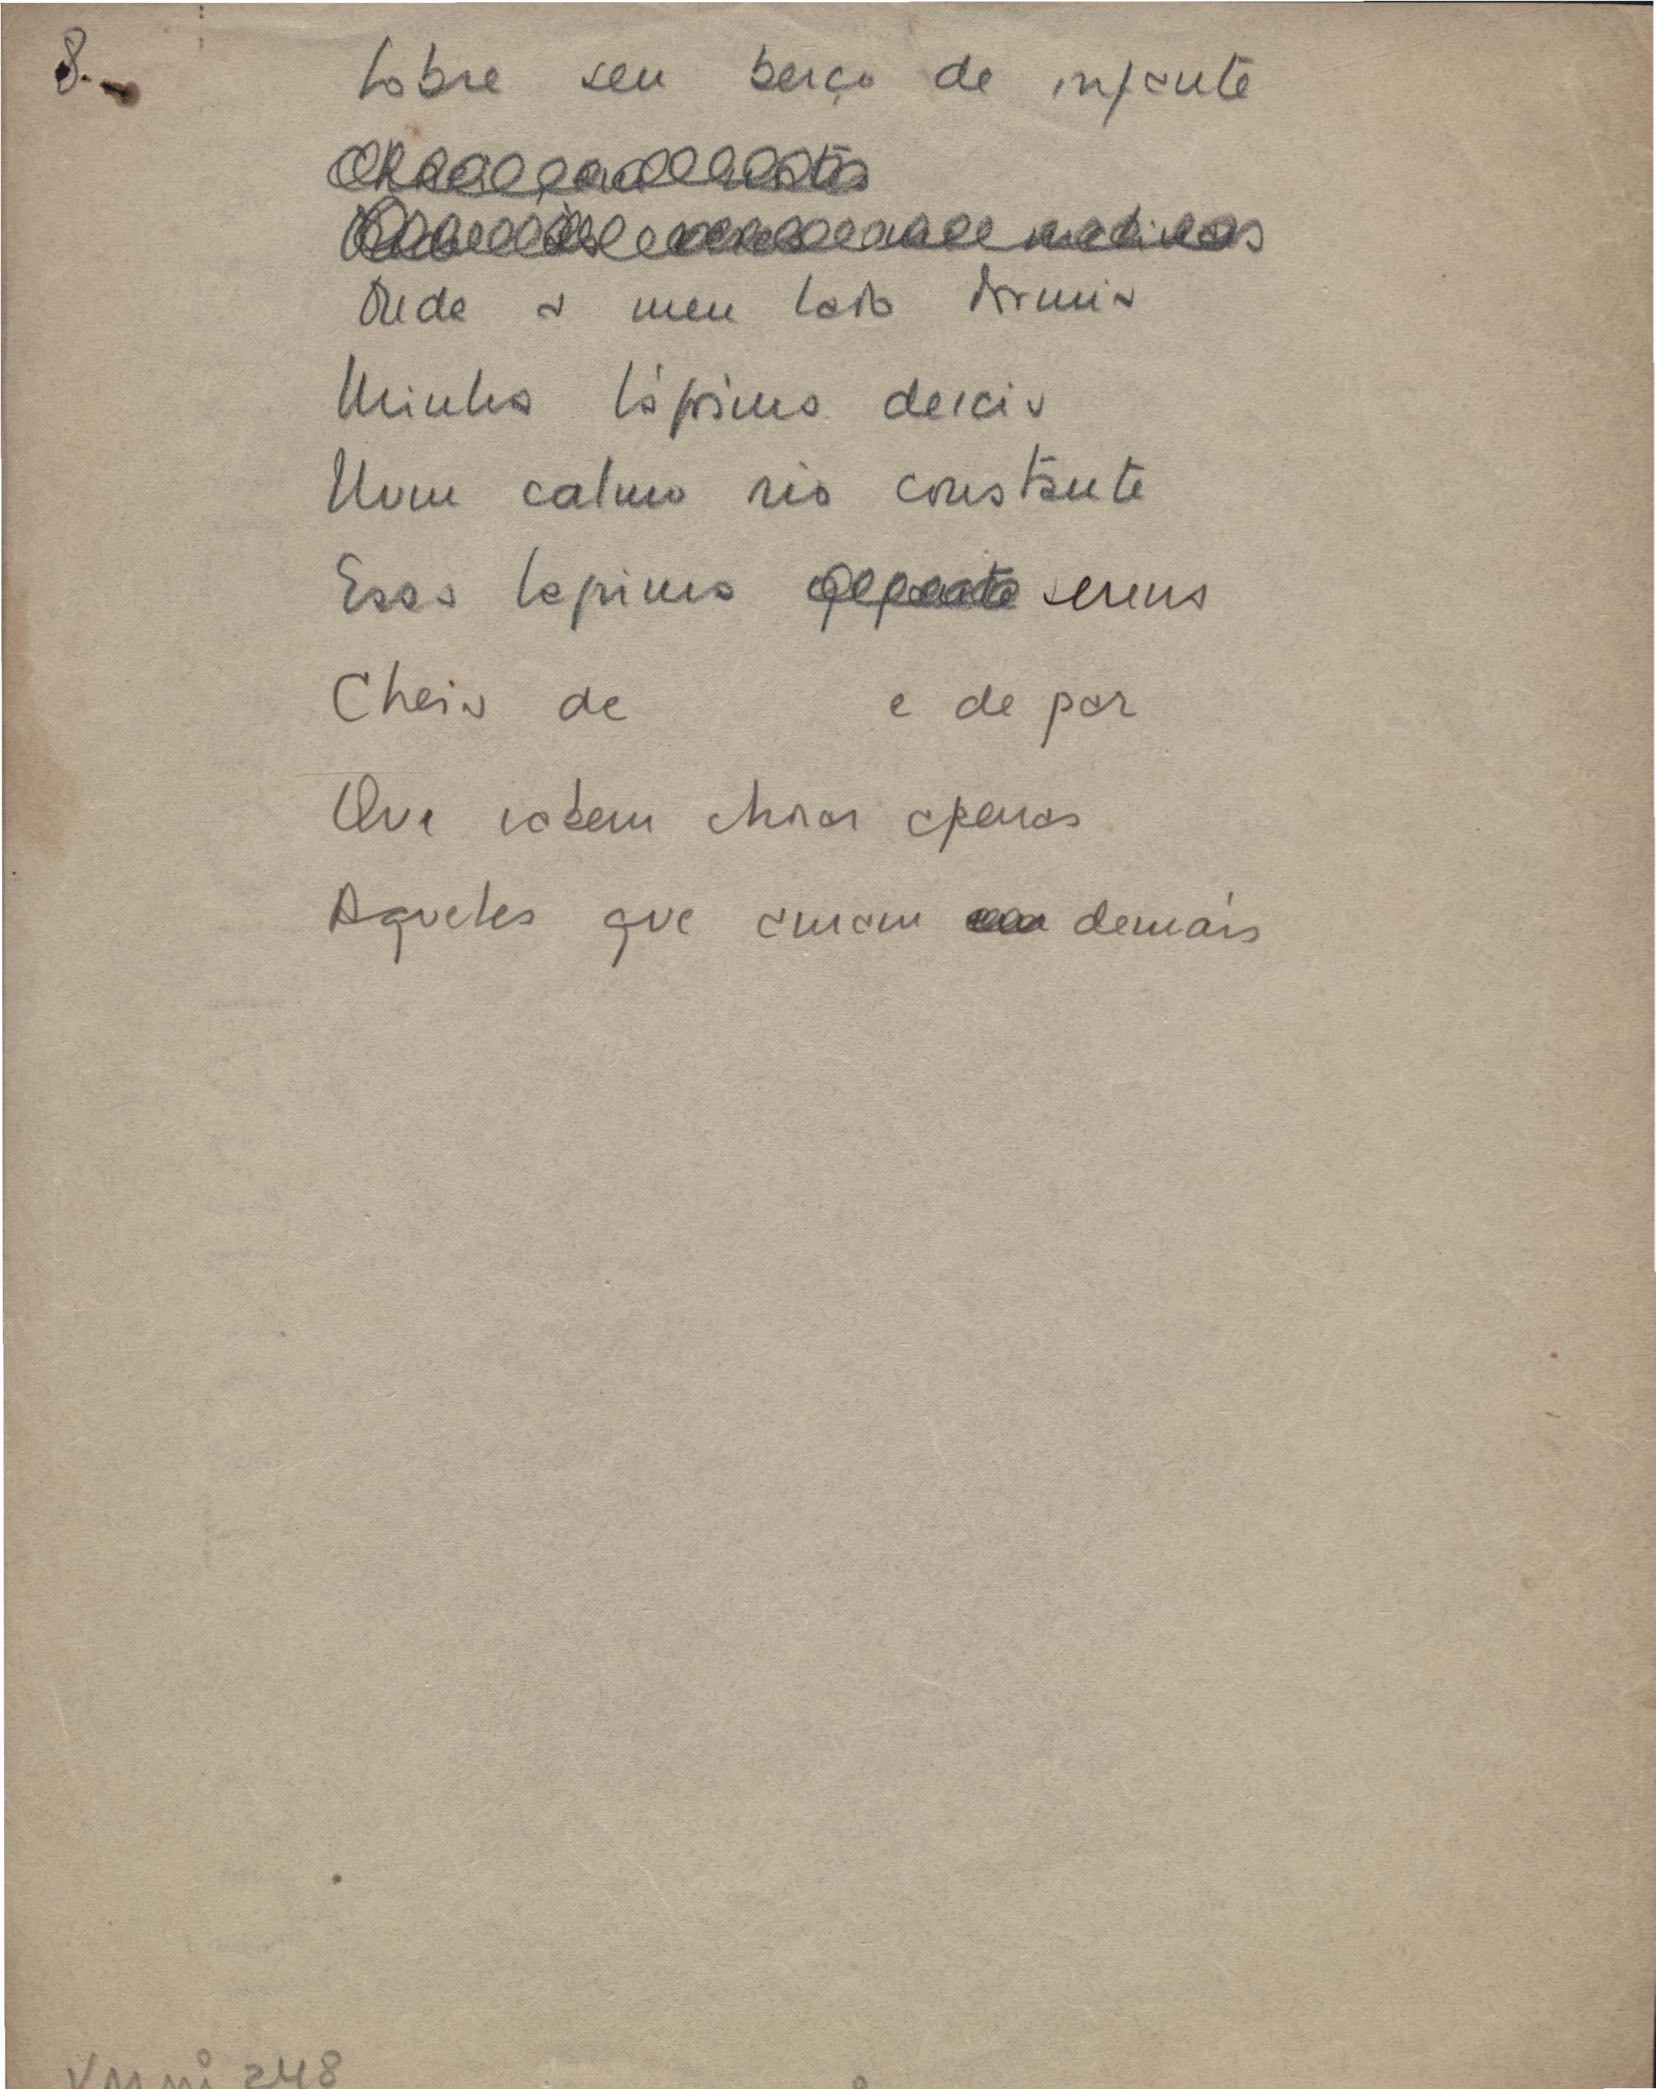 8.
Sobre seu berço de infante
Onde a meu lado dormia
Minha lágrima descia
Num calmo rio constante
Essa lagrima serena
Cheia de e de paz
Que sabem chorar apenas
Aqueles que amam demais
VMpi 248